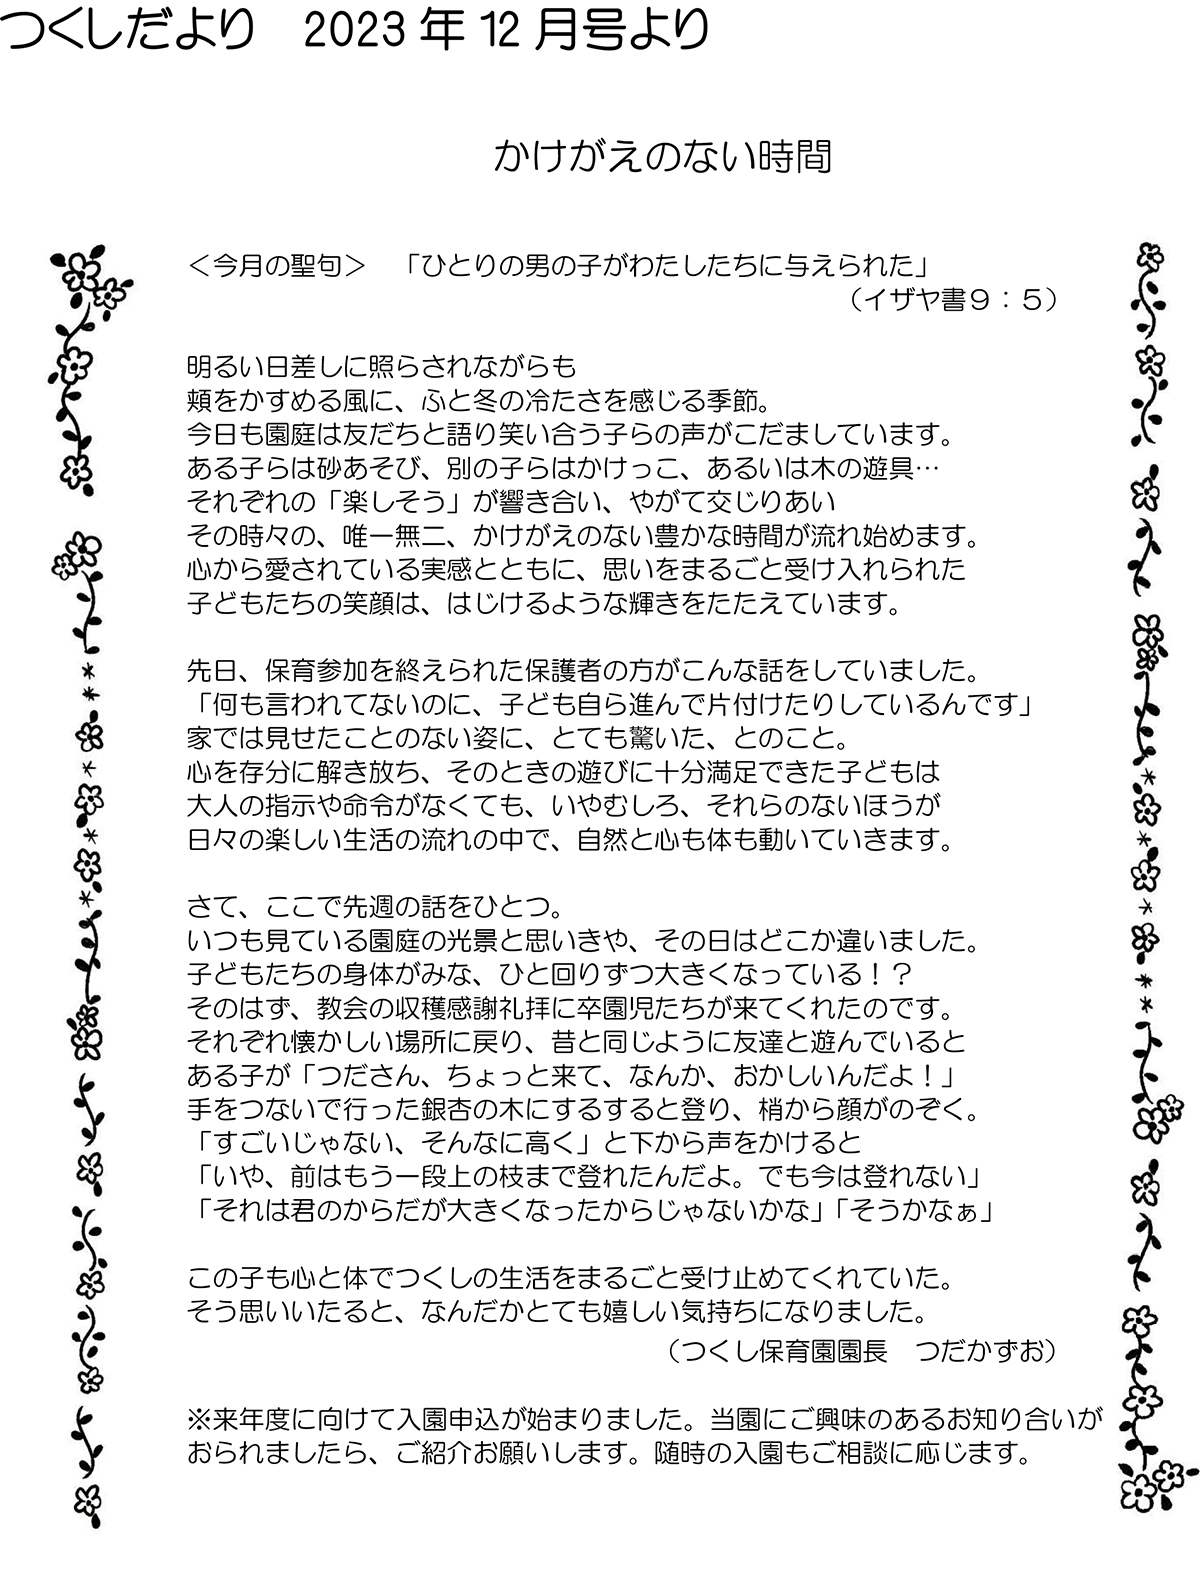 つくしだより　2023 年 12 月号より
かけがえのない時間
＜今月の聖句＞　「ひとりの男の子がわたしたちに与えられた」
（イザヤ書９：５）
明るい日差しに照らされながらも
頬をかすめる風に、ふと冬の冷たさを感じる季節。
今日も園庭は友だちと語り笑い合う子らの声がこだましています。
ある子らは砂あそび、別の子らはかけっこ、あるいは木の遊具…
それぞれの「楽しそう」が響き合い、やがて交じりあい
その時々の、唯一無二、かけがえのない豊かな時間が流れ始めます。
心から愛されている実感とともに、思いをまるごと受け入れられた
子どもたちの笑顔は、はじけるような輝きをたたえています。
先日、保育参加を終えられた保護者の方がこんな話をしていました。
「何も言われてないのに、子ども自ら進んで片付けたりしているんです」
家では見せたことのない姿に、とても驚いた、とのこと。
心を存分に解き放ち、そのときの遊びに十分満足できた子どもは
大人の指示や命令がなくても、いやむしろ、それらのないほうが
日々の楽しい生活の流れの中で、自然と心も体も動いていきます。
さて、ここで先週の話をひとつ。
いつも見ている園庭の光景と思いきや、その日はどこか違いました。
子どもたちの身体がみな、ひと回りずつ大きくなっている！？
そのはず、教会の収穫感謝礼拝に卒園児たちが来てくれたのです。
それぞれ懐かしい場所に戻り、昔と同じように友達と遊んでいると
ある子が「つださん、ちょっと来て、なんか、おかしいんだよ！」
手をつないで行った銀杏の木にするすると登り、梢から顔がのぞく。
「すごいじゃない、そんなに高く」と下から声をかけると
「いや、前はもう一段上の枝まで登れたんだよ。でも今は登れない」
「それは君のからだが大きくなったからじゃないかな」「そうかなぁ」
この子も心と体でつくしの生活をまるごと受け止めてくれていた。
そう思いいたると、なんだかとても嬉しい気持ちになりました。
（つくし保育園園長　つだかずお）
※来年度に向けて入園申込が始まりました。当園にご興味のあるお知り合いが
おられましたら、ご紹介お願いします。随時の入園もご相談に応じます。